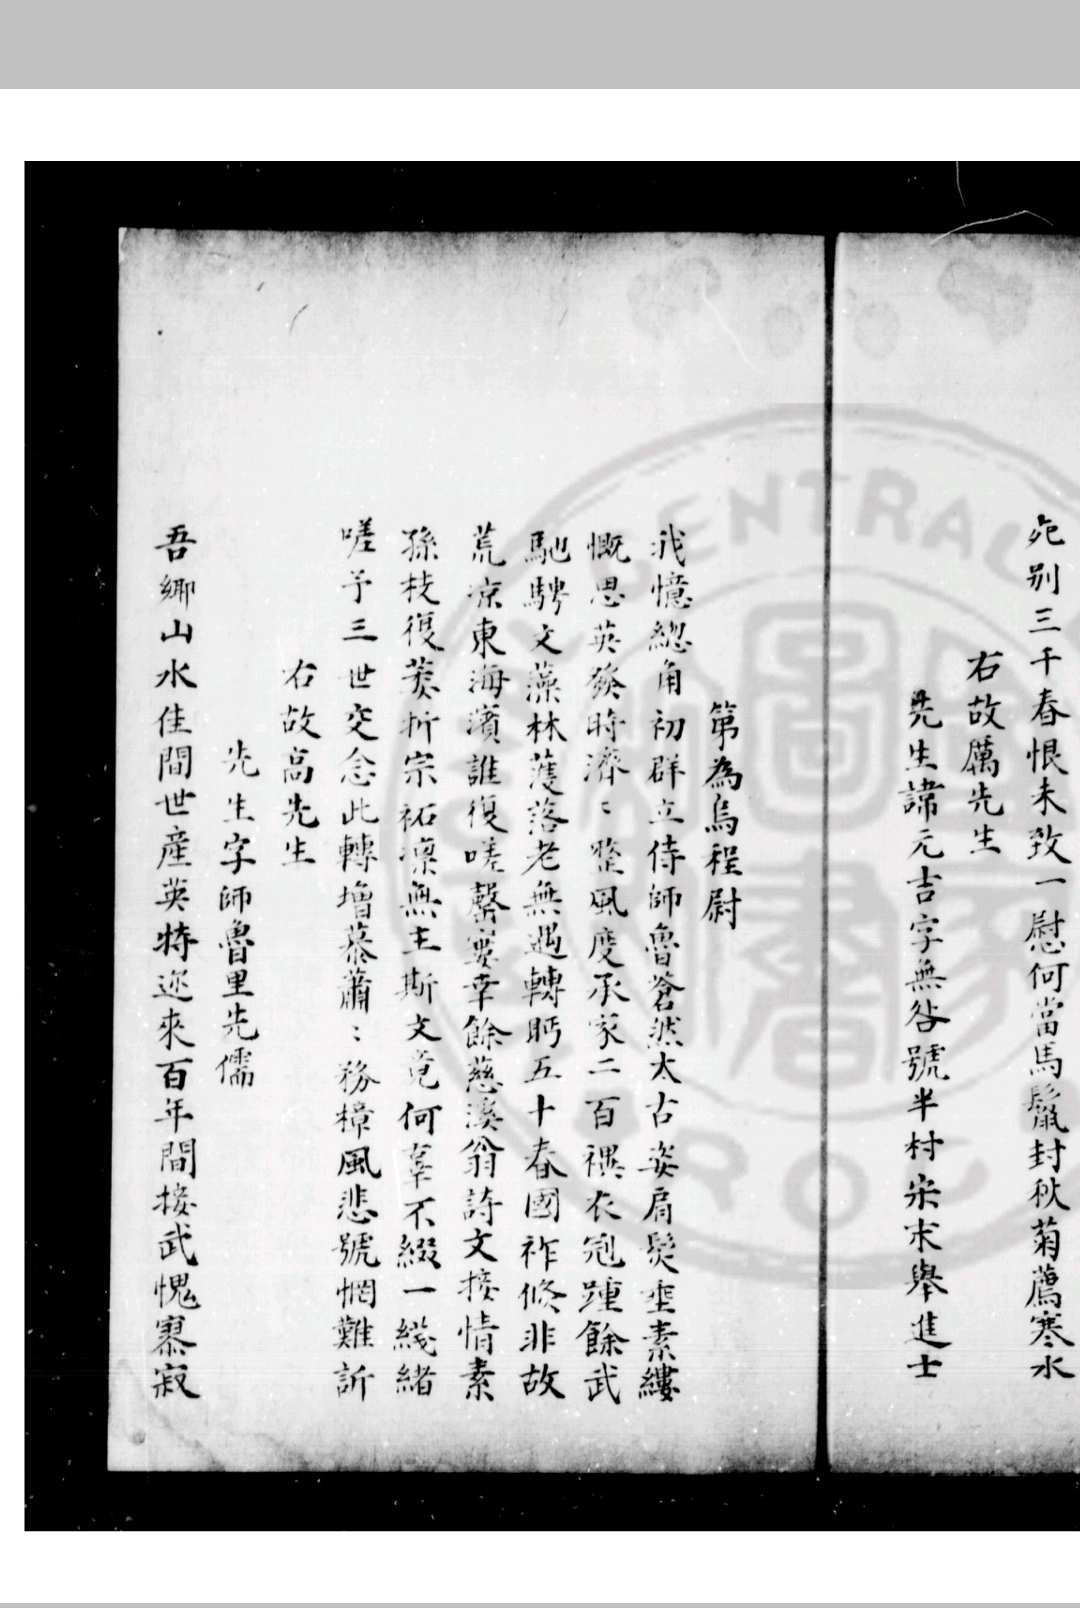 宛别三千春恨未致一慰何當馬鬛封秋菊薦寒水
右故厲先生
先生諱元吉字無咎號半村宋末舉進士
第為烏程尉
我憶總角初群立侍師魯蒼然太古姿肩髮垂素縷
慨思英發時濟〻整風度承家二百禩衣冠踵餘武
馳騁文藻林蒦落老無遇轉眄五十春國祚倐非故
荒凉東海濱誰復嗟罄寠幸餘慈溪翁詩文接情素
孫枝復萎折宗祏凛無主斯文竟何辜不綴一綫緒
嗟予三世交念此轉增慕蕭〻務樟風悲號惘難訴
右故高先生
先生字師魯里先儒
吾鄉山水佳間世産英特迩來百年間接武愧寡寂
CENTRAL